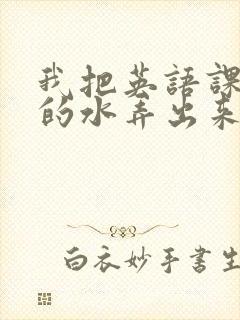 我把英語課
的水弄出來
白衣妙手書生